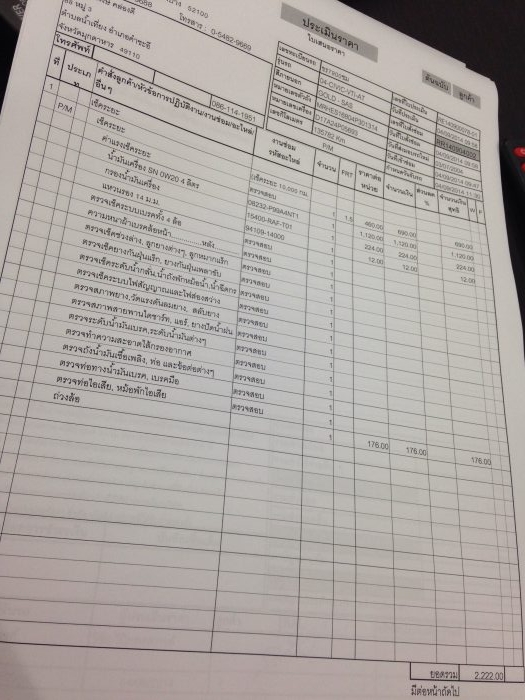 52100
โทรสาร : 0-5482-9669
หมู่ 3
ตำบลน้ำเที่ยง อำเภอคำชะอี
จังหวัดมุกดาหาร 49110
โทรศัพท์
086-114-1951
ประเมินราคา
ใบเสนอราคา
ต้นฉบับ ลูกค้า
รุ่นรถ 04-CIVIC-VTI-AT
สีภายนอก GOLD - SAS
หมายเลขตัวถัง
หมายเลขเครื่อง
เลขกิโลเมตร 135782 Km
ที่
ประเภท
คำสั่งลูกค้า/หัวข้อการปฏิบัติงาน/งานซ่อม/อะไหล่/อื่นๆ
งานซ่อม
รหัสอะไหล่
P/M
จำนวน
FRT
ราคาต่อหน่วย
จำนวนเงิน
ส่วนลด %
จำนวนเงินสุทธิ
W
F
1 P/M เช็คระยะ
เช็คระยะ เช็คระยะ 10,000 กม.
ค่าแรงเช็คระยะ ตรวจสอบ 1 1.5 460.00 690.00 690.00
น้ำมันเครื่อง SN 0W20 4 ลิตร 08232-P99A4NT1 1 1,120.00 1,120.00 1,120.00
กรองน้ำมันเครื่อง 15400-RAF-T01 1 224.00 224.00 224.00
แหวนรอง 14 ม.ม. 94109-14000 1 12.00 12.00 12.00
ตรวจเช็คระบบเบรคทั้ง 4 ล้อ ตรวจสอบ 1
ความหนาผ้าเบรคล้อหน้า............หลัง ตรวจสอบ 1
ตรวจเช็คช่วงล่าง, ลูกยางต่างๆ, ลูกหมากแร็ก ตรวจสอบ 1
ตรวจเช็คยางกันฝุ่นแร็ค, ยางกันฝุ่นเพลาขับ ตรวจสอบ 1
ตรวจเช็คระดับน้ำกลั่น,น้ำถังพักหม้อน้ำ,น้ำฉีดกระ ตรวจสอบ 1
ตรวจเช็คระบบไฟสัญญาณและไฟส่องสว่าง ตรวจสอบ 1
ตรวจสภาพยาง,วัดแรงดันลมยาง, สลับยาง ตรวจสอบ 1
ตรวจสภาพสายพานไดชาร์ท, แอร์, ยางปัดน้ำฝน ตรวจสอบ 1
ตรวจระดับน้ำมันเบรค,ระดับน้ำมันต่างๆ ตรวจสอบ 1
ตรวจทำความสะอาดไส้กรองอากาศ ตรวจสอบ 1
ตรวจถังน้ำมันเชื้อเพลิง, ท่อ และข้อต่อต่างๆ ตรวจสอบ 1
ตรวจท่อทางน้ำมันเบรค, เบรคมือ ตรวจสอบ 1
ตรวจท่อไอเสีย, หม้อพักไอเสีย ตรวจสอบ 1
ถ่วงล้อ 1 176.00 176.00 176.00
ยอดรวม 2,222.00
มีต่อหน้าถัดไป